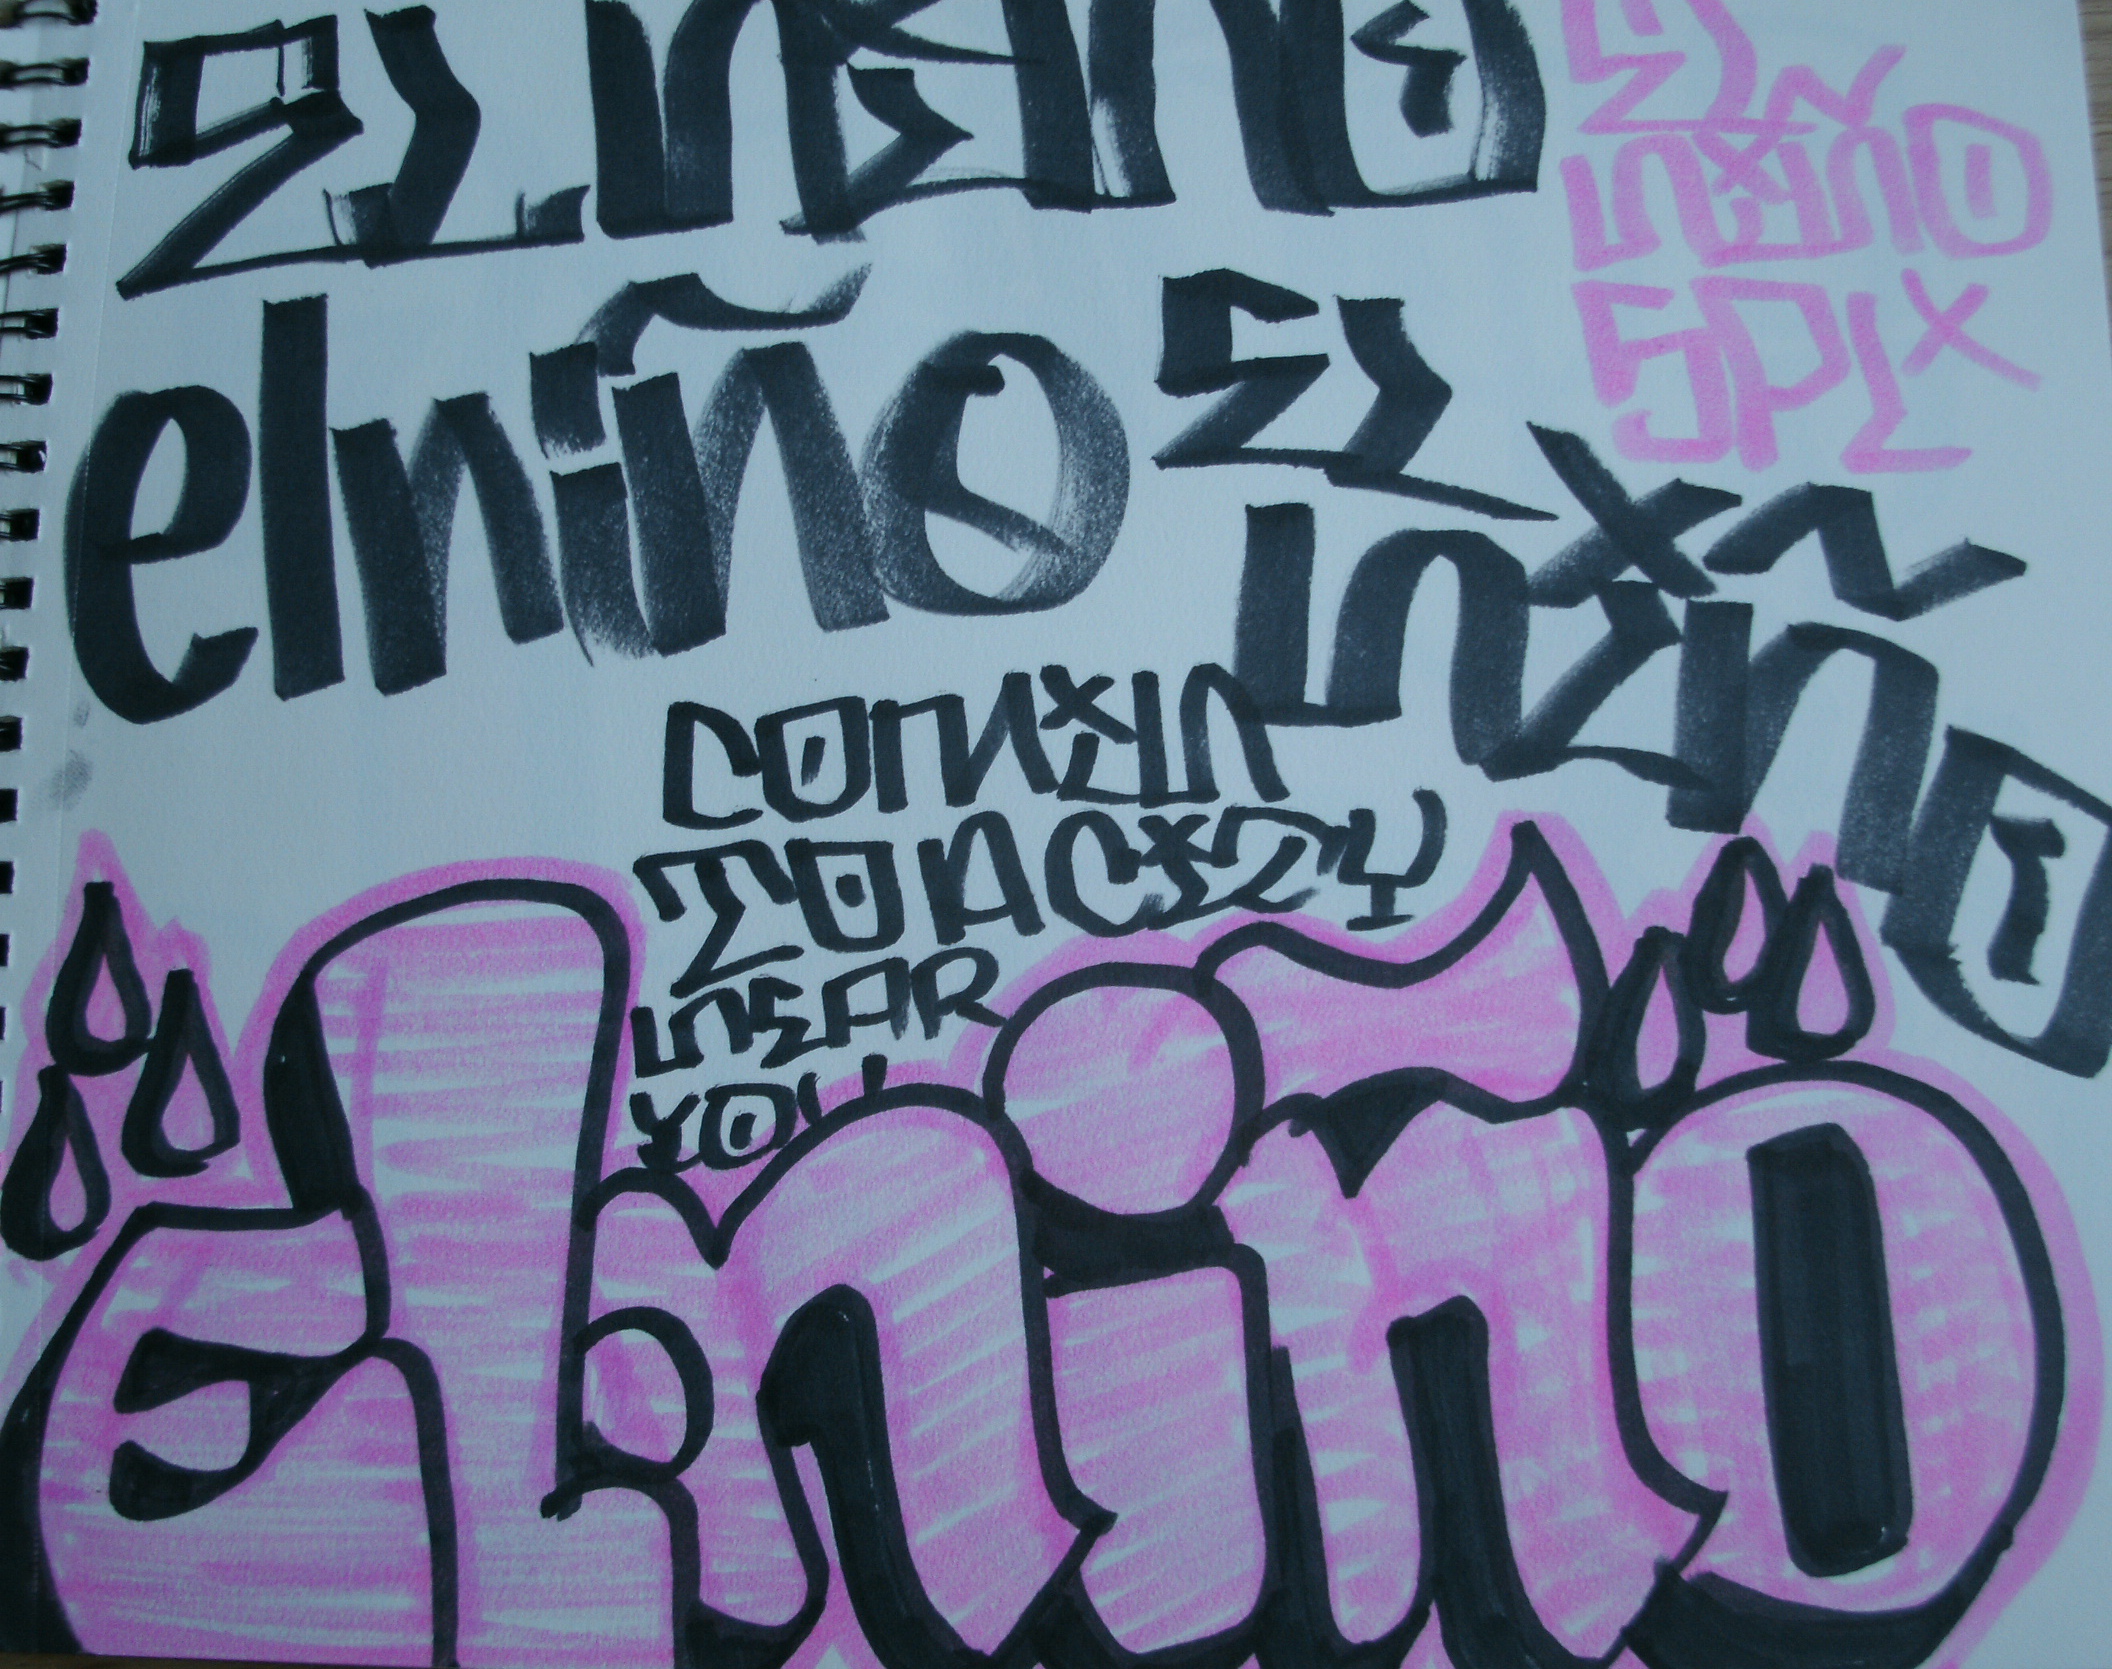 EL NIÑO
EL
NIÑO
SPL
elniño
EL
NIÑO
COMIN
TO A CITY
NEAR
YOU
elniño